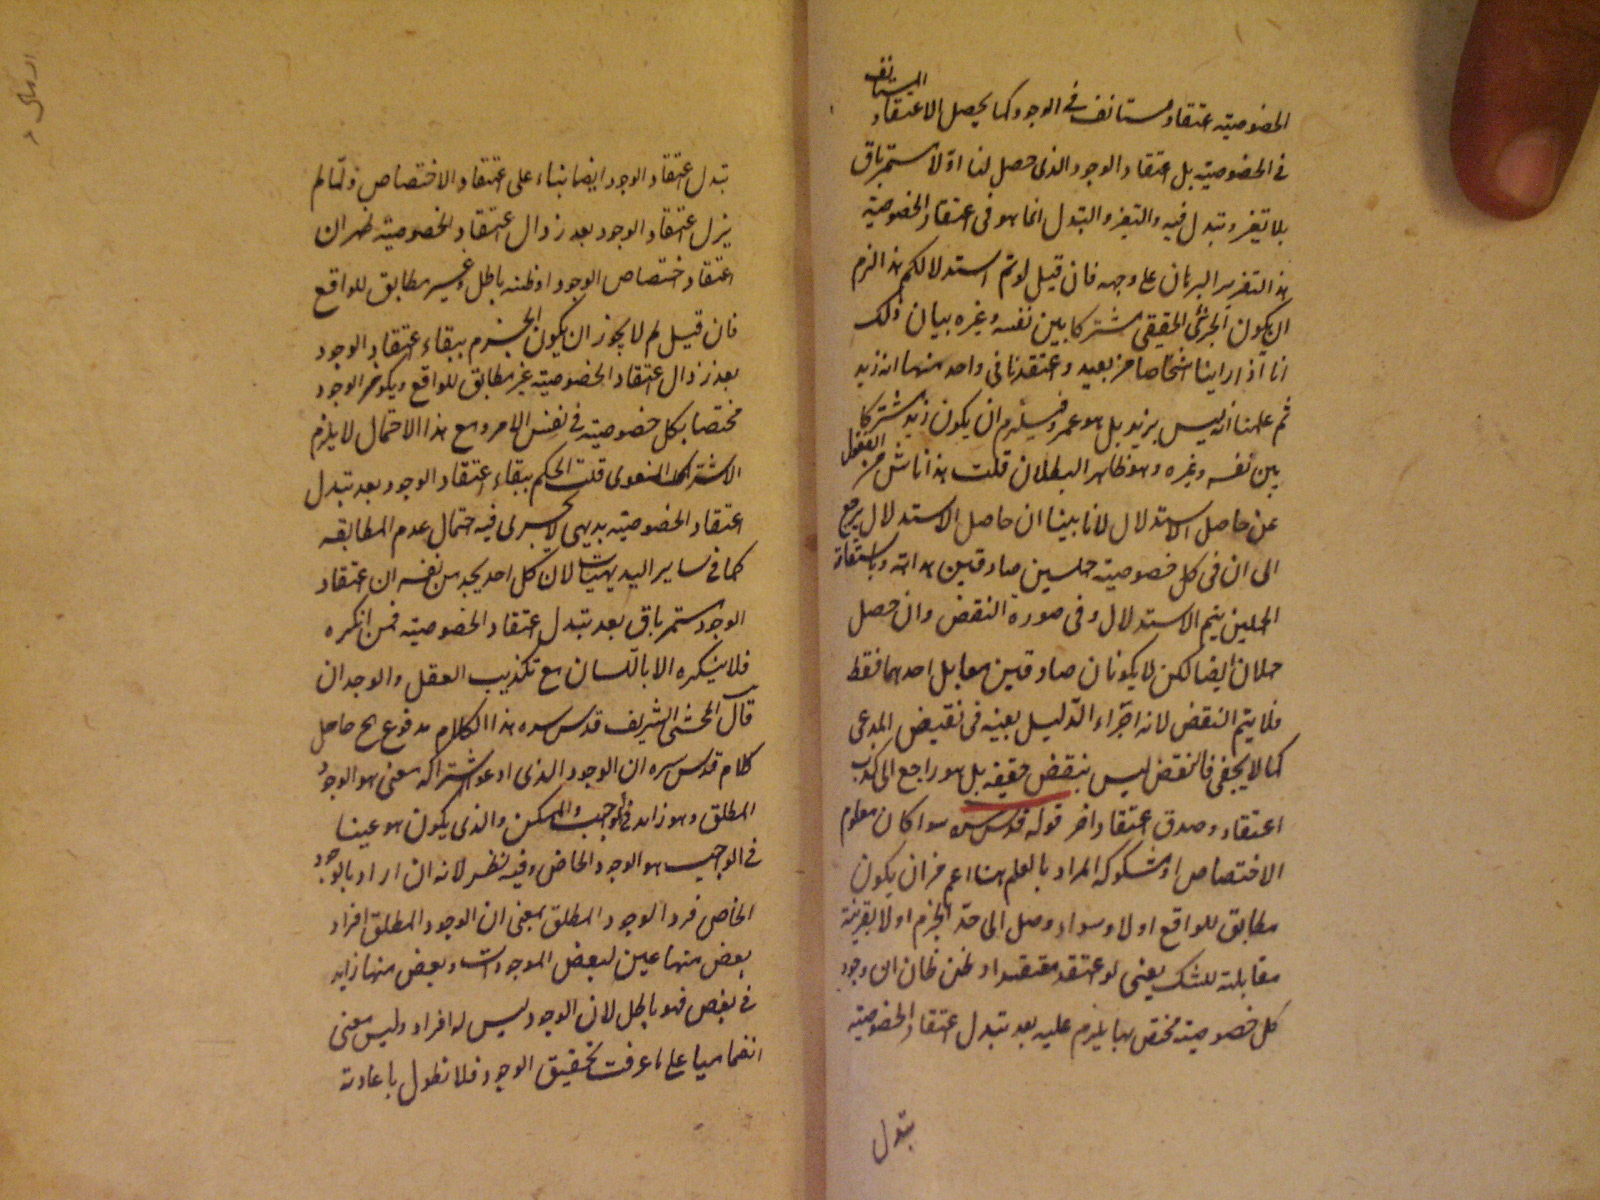 الخصوصية اعتقاد مستانف في الوجود كما يحصل الاعتقاد المستانف
في الخصوصية بل اعتقاد الوجود الذى حصل لنا اولا مستمر باق
بلا تغير وتبدل فيه والتغير والتبدل انما هو في اعتقاد الخصوصية
هذا تقرير البرهان على وجهه فان قيل لو تم استدلالكم هذا لزم
ان يكون الجزئى الحقيقى مشتركا بين نفسه وغيره بيان ذلك
انا اذا راينا اشخاصا من بعيد واعتقدنا في واحد منها انه زيد
ثم علمنا انه ليس بزيد بل هو عمرو فيلزم ان يكون زيد مشتركا
بين نفسه وغيره وهو ظاهر البطلان قلت هذا ناش من الغفول
عن حاصل الاستدلال لانا بينا ان حاصل الاستدلال يرجع
الى ان في كل خصوصية حملين صادقين بداهة وباستعانة
الحملين يتم الاستدلال وفى صورة النقض وان حصل
حملان ايضا لكن لا يكونان صادقين معا بل احدهما فقط
فلا يتم النقض لانه اجراء الدليل بعينه فى نقيض المدعى
كما لا يخفى فالنقض ليس بنقض حقيقة بل هو راجع الى كذب
اعتقاد وصدق اعتقاد اخر قوله قدس سره سوا كان معلوم
الاختصاص او مشكوكه المراد بالعلم هنا اعم من ان يكون
مطابق للواقع اولا وسواء وصل الى حد الجزم اولا بقرينة
مقابلته للشك يعنى لو اعتقد معتقد او ظن ظان ان وجود
كل خصوصية مختص بها يلزم عليه بعد تبدل اعتقاد الخصوصية
تبدل
تبدل اعتقاد الوجود ايضا بناء على اعتقاد الاختصاص ولما لم
يزل اعتقاد الوجود بعد زوال اعتقاد الخصوصية ظهر ان
اعتقاد اختصاص الوجود او ظنه باطل وغير مطابق للواقع
فان قيل لم لا يجوز ان يكون الجزم ببقاء اعتقاد الوجود
بعد زوال اعتقاد الخصوصية غير مطابق للواقع ويكون الوجود
مختصا بكل خصوصية في نفس الامر ومع هذا الاحتمال لا يلزم
الاشتراك المعنوى قلت الحكم ببقاء اعتقاد الوجود بعد تبدل
اعتقاد الخصوصية بديهى لا يجرى فيه احتمال عدم المطابقه
كما في ساير البديهيات لان كل احد يجد من نفسه ان اعتقاد
الوجود مستمر باق بعد تبدل اعتقاد الخصوصية فمن انكره
فلا ينكره الا باللسان مع تكذيب العقل والوجدان
قال المحشى الشريف قدس سره هذا الكلام مدفوع الخ حاصل
كلام قدس سره ان الوجود الذى ادعوا اشتراكه معنى هو الوجود
المطلق وهو زايد في الواجب والممكن والذى يكون هو عينا
في الواجب هو الوجود الخاص وفيه نظر لانه ان اراد بالوجود
الخاص فرد الوجود المطلق بمعنى ان الوجود المطلق افراد
بعض منها عين لبعض الموجودات وبعض منها زايد
في بعض فهو باطل لان الوجود ليس له افراد وليس معنى
انضماميا على ما عرفت تحقيق الوجود فلا نطول باعادته